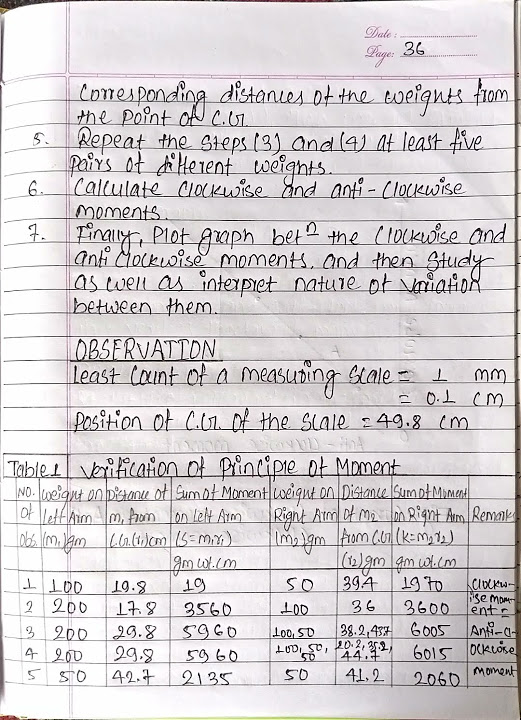 Date :
Page: 36
Corresponding distances of the weights from
the point of C.G.
5. Repeat the steps (3) and (4) at least five
pairs of different weights.
6. Calculate Clockwise and anti-Clockwise
moments.
7. Finally, Plot graph betn the Clockwise and
anti Clockwise moments, and then study
as well as interpret nature of variation
between them.
OBSERVATION
least Count of a measuring Scale = 1 mm
= 0.1 cm
Position of C.G. of the scale = 49.8 cm
Table 1 Verification of Principle of Moment
NO. weight on Distance of Sum of Moment weight on Distance Sum of Moment
of left Arm m1 from on left Arm Right Arm of m2 on Right Arm Remark
obs. (m1)gm C.G.(r1)cm (S=m1r1) (m2)gm from C.G (k=m2r2)
gm wt.cm (r2)gm gm wt.cm
1 100 19.8 19 50 39.4 1970 Clockw-
2 200 17.8 3560 100 36 3600 ise mom-
ent =
3 200 29.8 5960 100,50 38.2, 6005 Anti-cl-
4 200 29.8 5960 100, 50, 50 20.2, 35.2, 44.7 6015 ockwise
5 50 42.7 2135 50 41.2 2060 moment